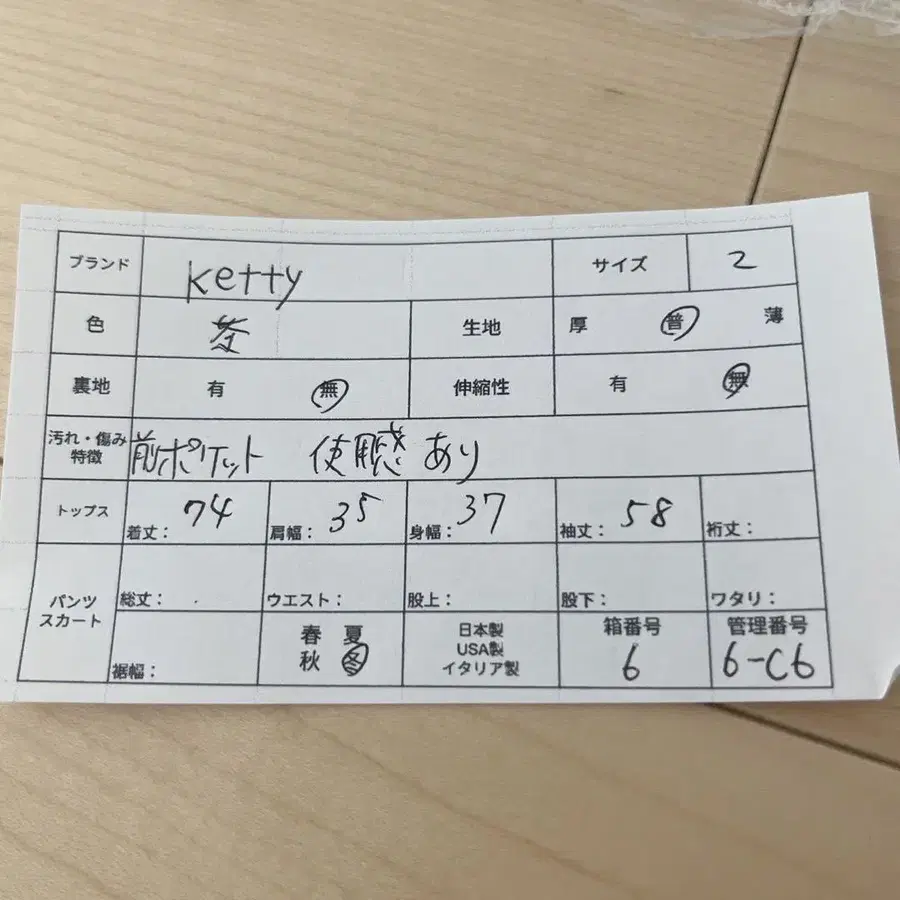 ブランド ketty サイズ 2
色 茶 生地 厚 普 薄
裏地 有 無 伸縮性 有 無
汚れ・傷み
特徴 前ポケット 使用感あり
トップス 着丈: 74 肩幅: 35 身幅: 37 袖丈: 58 裄丈:
パンツ
スカート 総丈: ウエスト: 股上: 股下: ワタリ:
裾幅:
春 夏
秋 冬
日本製
USA製
イタリア製
箱番号
6
管理番号
6-C6